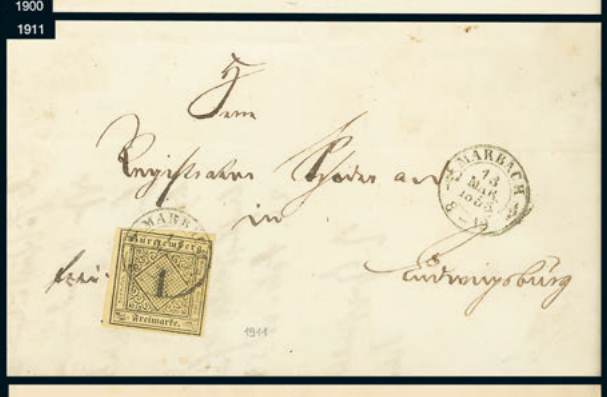 1900
1911
Herrn
Registrator
in
frei
Ludwigsburg
MARBACH
13
MAR.
1853
MARB
Württemberg
1
Freimarke.
1911